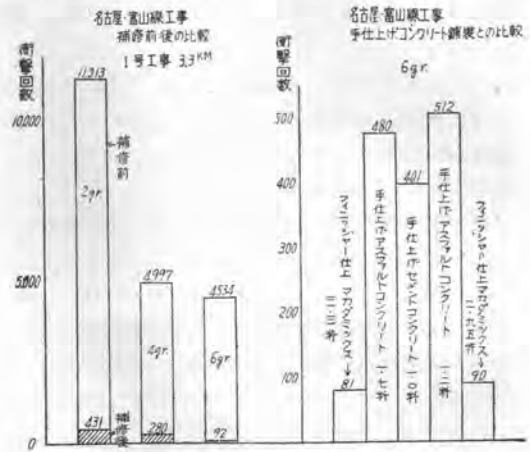 名古屋・富山線工事
補修前後の比較
1号工事 3.3KM
衝撃回数
11313
10,000
補修前
2gr.
5,000
4997
4534
4gr.
6gr.
431
補修後
280
92
0
名古屋・富山線工事
手仕上げコンクリート舗装との比較
6gr.
衝撃回数
500
400
300
200
100
フィニッシャー仕上マカダミックス→
81
480
手仕上げアスファルトコンクリート 一・七粁
401
手仕上げセメントコンクリート 一・〇粁
512
手仕上げアスファルトコンクリート 一・二粁
フィニッシャー仕上マカダミックス→
二・九五粁
90